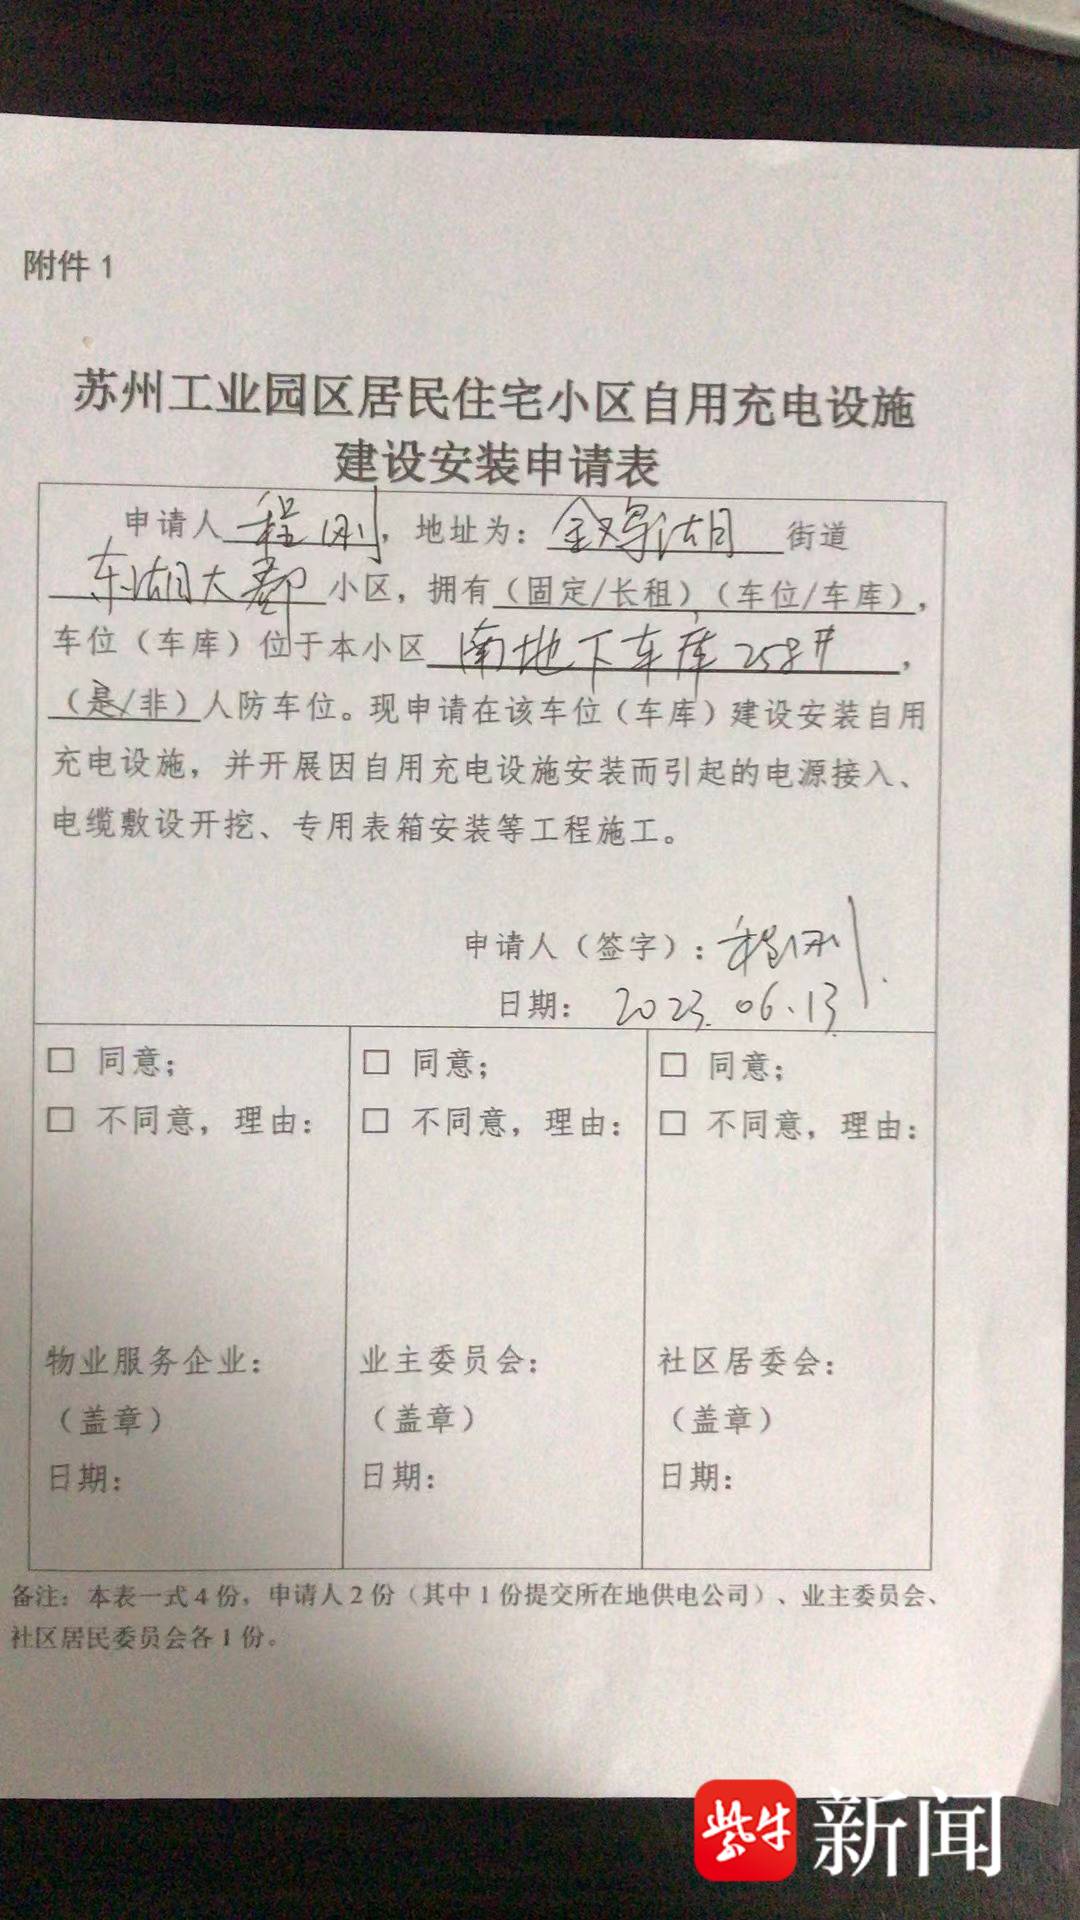 附件 1
苏州工业园区居民住宅小区自用充电设施
建设安装申请表
申请人 程刚，地址为：金鸡湖 街道
东湖大郡 小区，拥有（固定/长租）（车位/车库），
车位（车库）位于本小区 南地下车库 258#，
（是/非）人防车位。现申请在该车位（车库）建设安装自用
充电设施，并开展因自用充电设施安装而引起的电源接入、
电缆敷设开挖、专用表箱安装等工程施工。
申请人（签字）：程刚
日期： 2023.06.13
□ 同意；
□ 不同意，理由：
物业服务企业：
（盖章）
日期：
□ 同意；
□ 不同意，理由：
业主委员会：
（盖章）
日期：
□ 同意；
□ 不同意，理由：
社区居委会：
（盖章）
日期：
备注：本表一式 4 份，申请人 2 份（其中 1 份提交所在地供电公司）、业主委员会、
社区居民委员会各 1 份。
紫牛 新闻